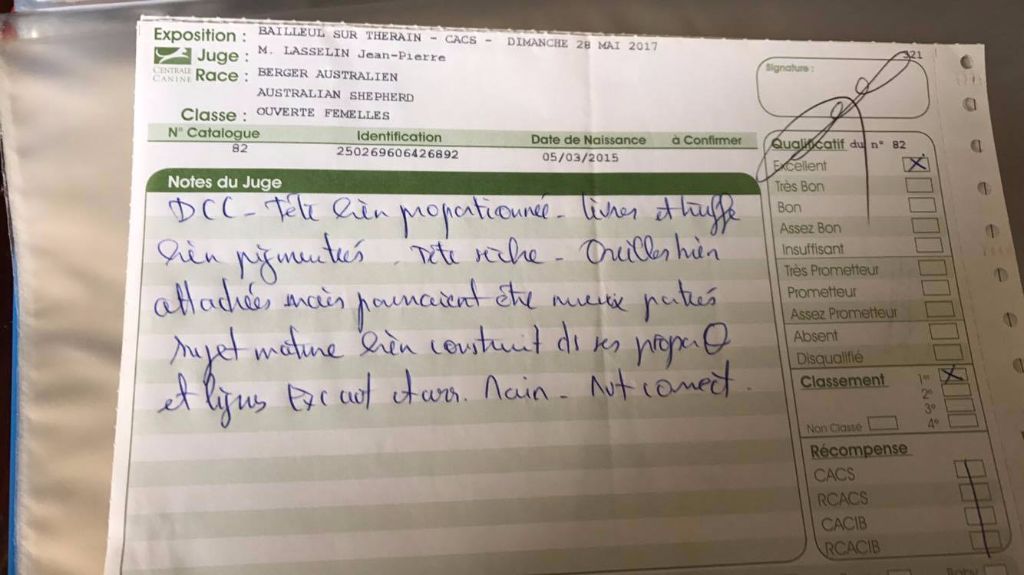 321
Exposition : BAILLEUL SUR THERAIN - CACS - DIMANCHE 28 MAI 2017
Juge : M. LASSELIN Jean-Pierre
CENTRALE CANINE
Race : BERGER AUSTRALIEN
AUSTRALIAN SHEPHERD
Classe : OUVERTE FEMELLES
Signature :
N° Catalogue Identification Date de Naissance à Confirmer
82 250269606426892 05/03/2015
Notes du Juge
DCC - Tête bien proportionnée - lèvres et truffe
bien pigmentées. Tête sèche - Oreilles bien
attachées mais pourraient être mieux portées
sujet mature bien construit ds ses propo
et lignes Exc avt et arr. Main - Mvt correct.
Qualificatif du n° 82
Excellent X
Très Bon
Bon
Assez Bon
Insuffisant
Très Prometteur
Prometteur
Assez Prometteur
Absent
Disqualifié
Classement 1er X
2e
3e
Non Classé 4e
Récompense
CACS
RCACS
CACIB
RCACIB